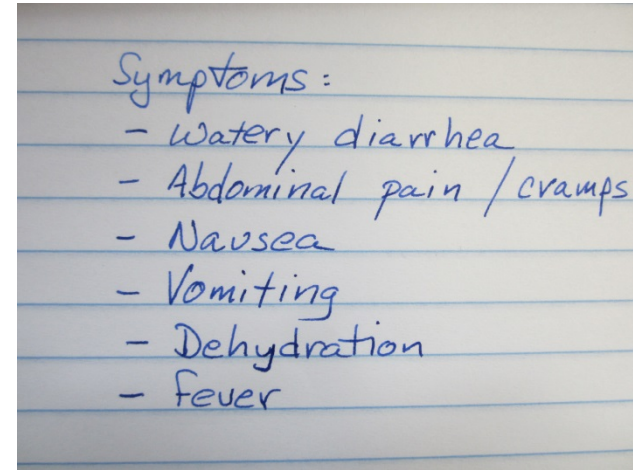 Symptoms:
- Watery diarrhea
- Abdominal pain / cramps
- Nausea
- Vomiting
- Dehydration
- Fever